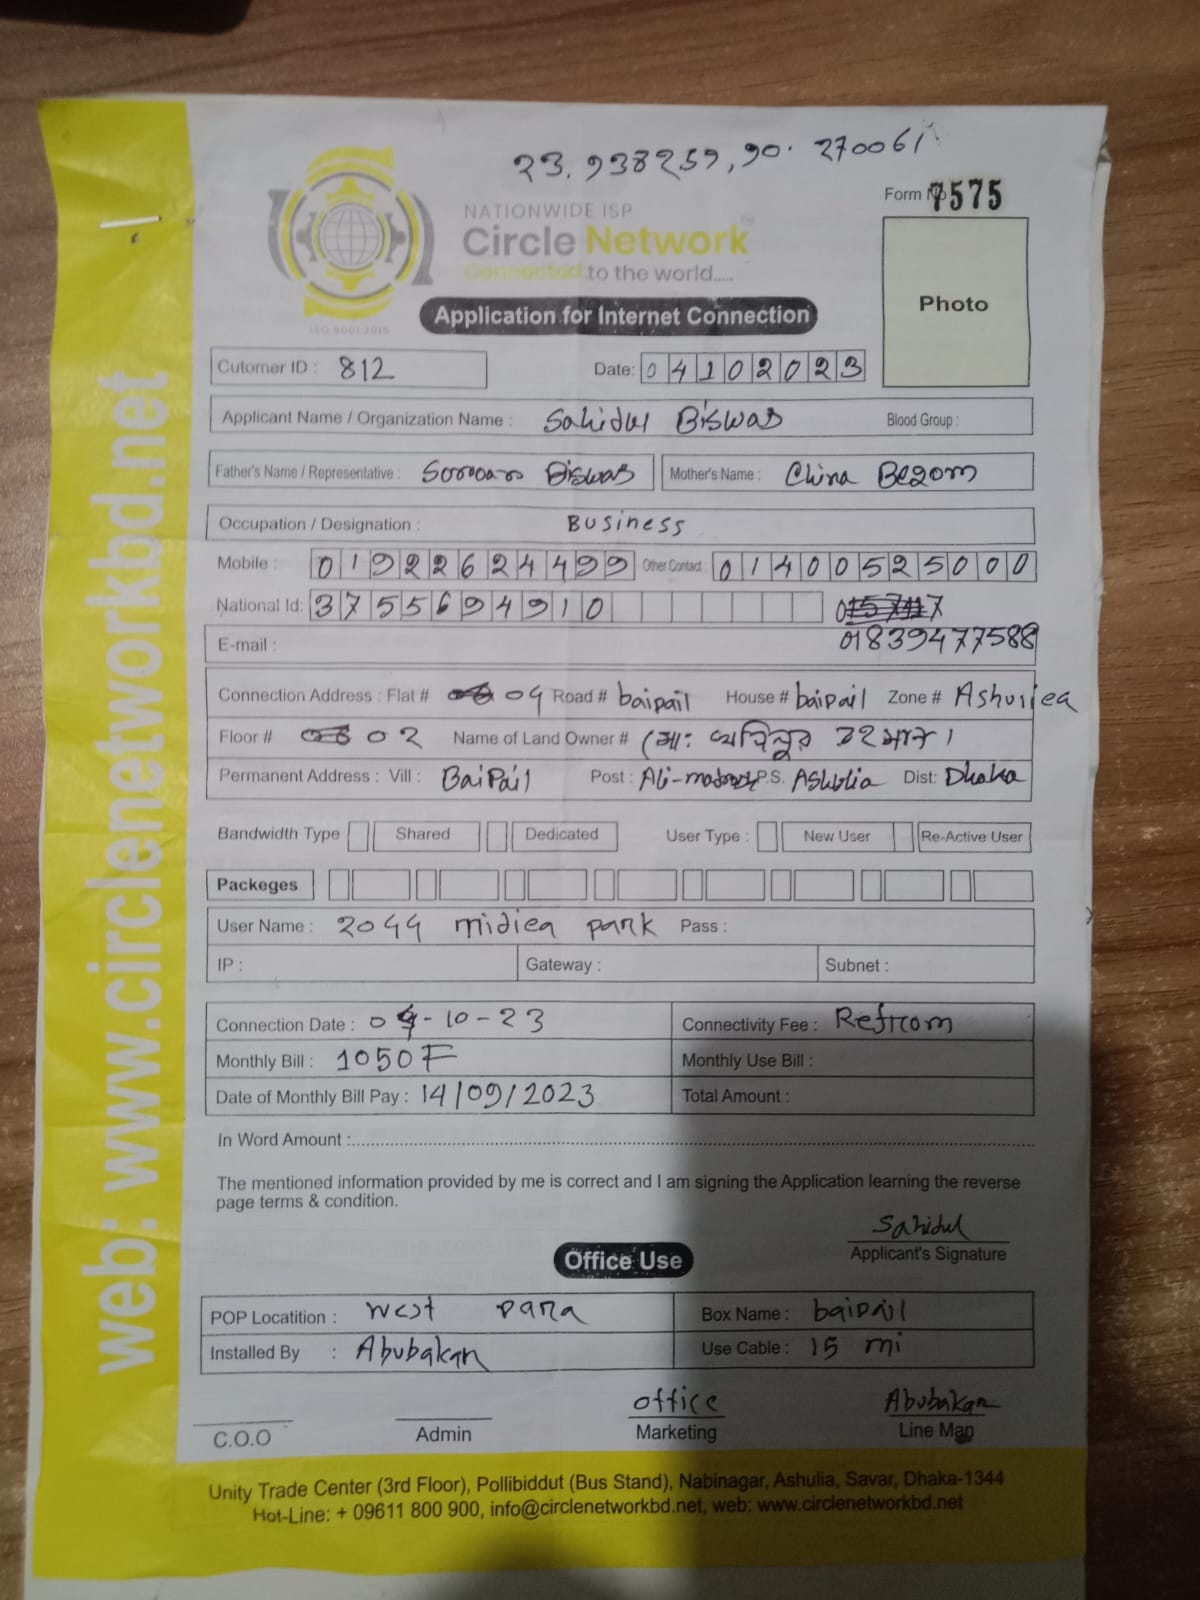 23.938259, 90.270061
Form No 7575
NATIONWIDE ISP
Circle Network
Connected to the world.....
ISO 9001:2015
Photo
Application for Internet Connection
Cutomer ID : 812 Date: 04102023
Applicant Name / Organization Name : Sahidul Biswas Blood Group :
Father's Name / Representative : Biswas Mother's Name : China Begom
Occupation / Designation : Business
Mobile : 01922624499 Other Contact : 01400525000
National Id: 3755694910
01839477588
E-mail :
Connection Address : Flat # 04 Road # baipail House # baipail Zone # Ashuliea
Floor # 02 Name of Land Owner # মোঃ
Permanent Address : Vill : BaiPail Post : P.S. Ashulia Dist: Dhaka
Bandwidth Type Shared Dedicated User Type : New User Re-Active User
Packeges
User Name : 2044 midiea park Pass :
IP : Gateway : Subnet :
Connection Date : 04-10-23 Connectivity Fee :
Monthly Bill : 1050 Monthly Use Bill :
Date of Monthly Bill Pay : 14/09/2023 Total Amount :
In Word Amount :
The mentioned information provided by me is correct and I am signing the Application learning the reverse
page terms & condition.
Sahidul
Applicant's Signature
Office Use
POP Locatition : west para Box Name : baipail
Installed By : Abubakar Use Cable : 15 mi
office Abubakar
C.O.O Admin Marketing Line Man
Unity Trade Center (3rd Floor), Pollibiddut (Bus Stand), Nabinagar, Ashulia, Savar, Dhaka-1344
Hot-Line: + 09611 800 900, info@circlenetworkbd.net, web: www.circlenetworkbd.net
web: www.circlenetworkbd.net